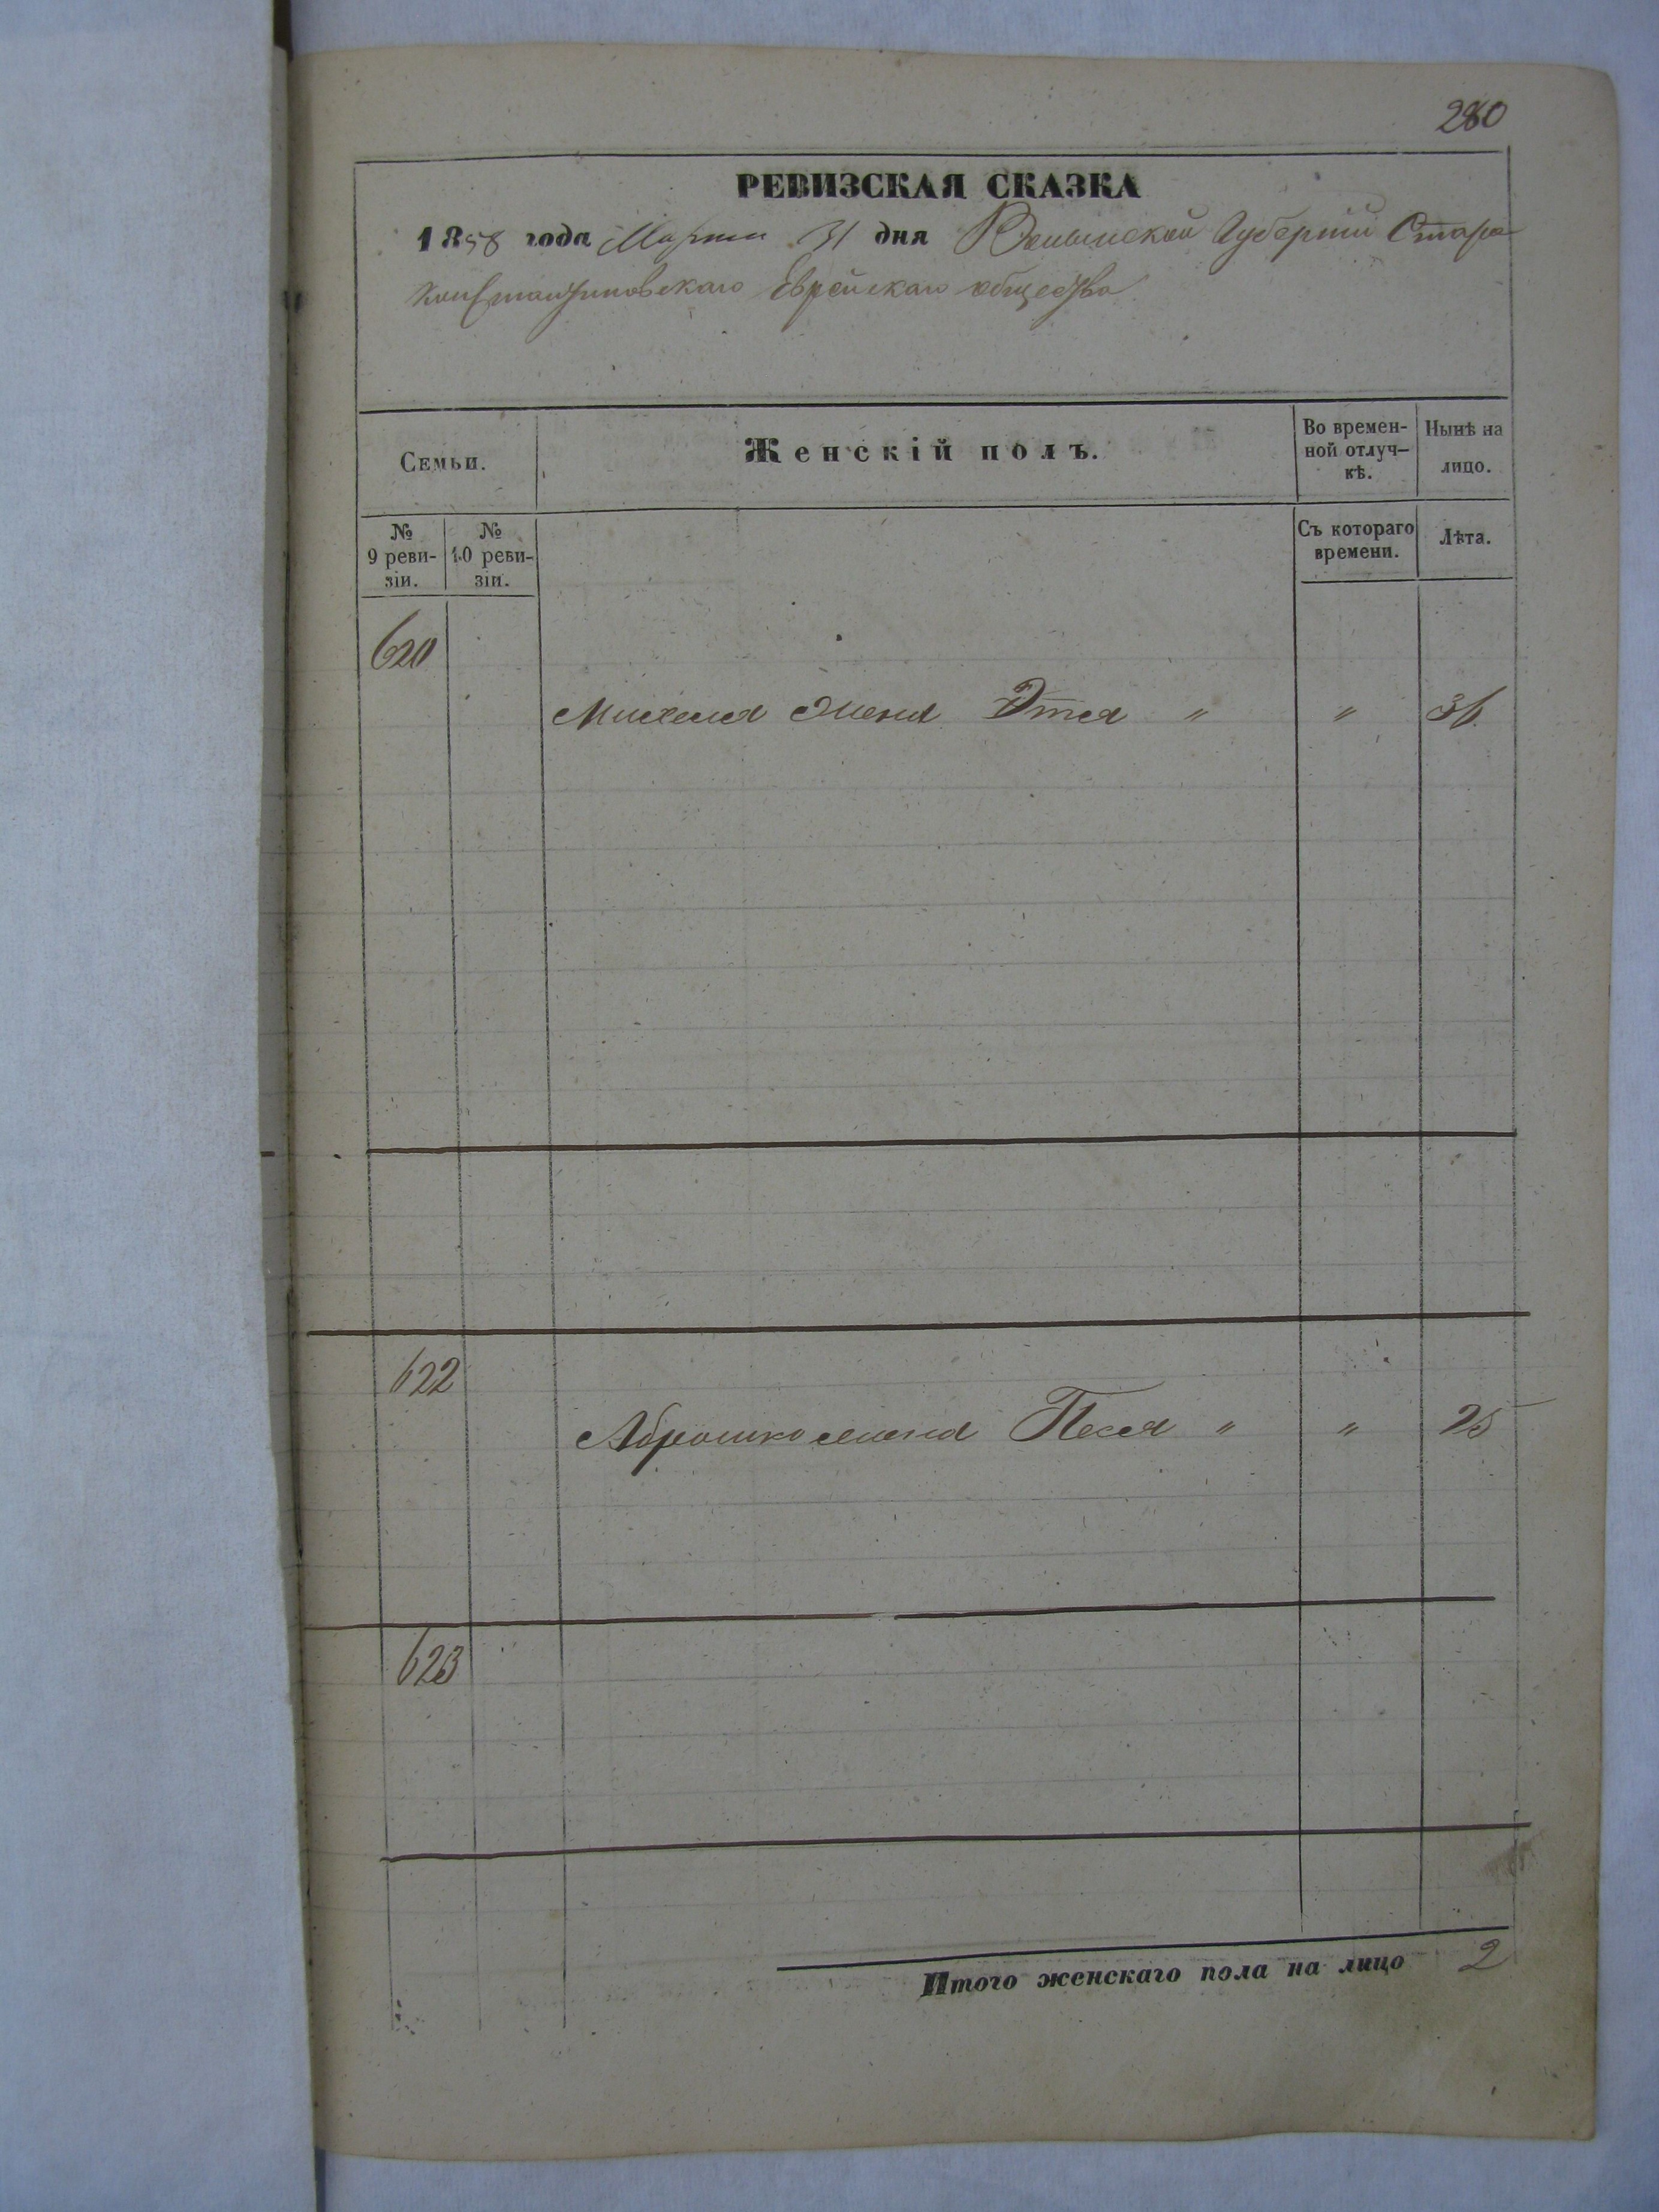 280
РЕВИЗСКАЯ СКАЗКА
1858 года Марта 31 дня Волынской Губерніи Старо
Константиновскаго Еврейскаго общества
Семьи.
Женскій полъ.
Во времен-
ной отлуч-
кѣ.
Нынѣ на
лицо.
№
9 реви-
зіи.
№
10 реви-
зіи.
Съ котораго
времени.
Лѣта.
620
жена Этля " " 36
622
Аброшко жена Песя " " 25
623
Итого женскаго пола на лицо 2